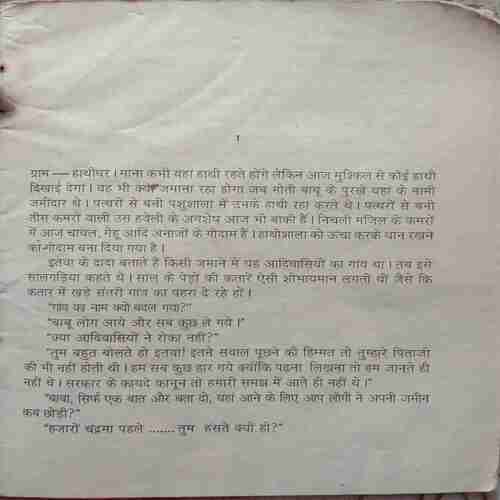 1
ग्राम — हाथीघर। माना कभी यहां हाथी रहते होंगे लेकिन आज मुश्किल से कोई हाथी
दिखाई देगा। वह भी क्या जमाना रहा होगा जब मोती बाबू के पुरखे यहां के नामी
जमींदार थे। पत्थरों से बनी पशुशाला में उनके हाथी रहा करते थे। पत्थरों से बनी
तीस कमरों वाली उस हवेली के अवशेष आज भी बाकी हैं। निचली मंजिल के कमरों
में आज चावल, गेहूं आदि अनाजों के गोदाम हैं। हाथीशाला को ऊंचा करके धान रखने
का गोदाम बना दिया गया है।
इतवा के दादा बताते हैं किसी जमाने में यह आदिवासियों का गांव था। तब इसे
सालगाड़िया कहते थे। साल के पेड़ों की कतारें ऐसी शोभायमान लगती थीं जैसे कि
कतार में खड़े संतरी गांव का पहरा दे रहे हों।
"गांव का नाम क्यों बदल गया?"
"बाबू लोग आये और सब कुछ ले गये।"
"क्या आदिवासियों ने रोका नहीं?"
"तुम बहुत बोलते हो इतवा! इतने सवाल पूछने की हिम्मत तो तुम्हारे पिताजी
की भी नहीं होती थी। हम सब कुछ हार गये क्योंकि पढ़ना लिखना तो हम जानते ही
नहीं थे। सरकार के कायदे कानून तो हमारी समझ में आते ही नहीं थे।"
"बाबा, सिर्फ एक बात और बता दो, यहां आने के लिए आप लोगों ने अपनी जमीन
कब छोड़ी?"
"हजारों चंद्रमा पहले ....... तुम हंसते क्यों हो?"